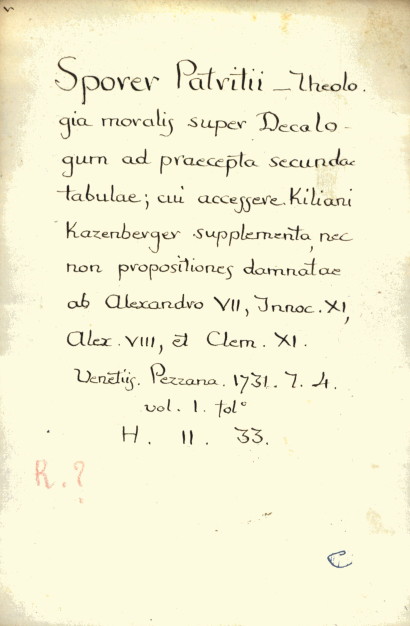 Sporer Patritii — Theolo.
gia moralis super Decalo-
gum ad praecepta secundae
tabulae; cui accessere Kiliani
Kazenberger supplementa, nec
non propositiones damnatae
ab Alexandro VII, Innoc. XI,
Alex. VIII, et Clem. XI.
Venetiis. Pezzana. 1731. 7. 4.
vol. 1. fol°
H. 11. 33.
R. ?
C